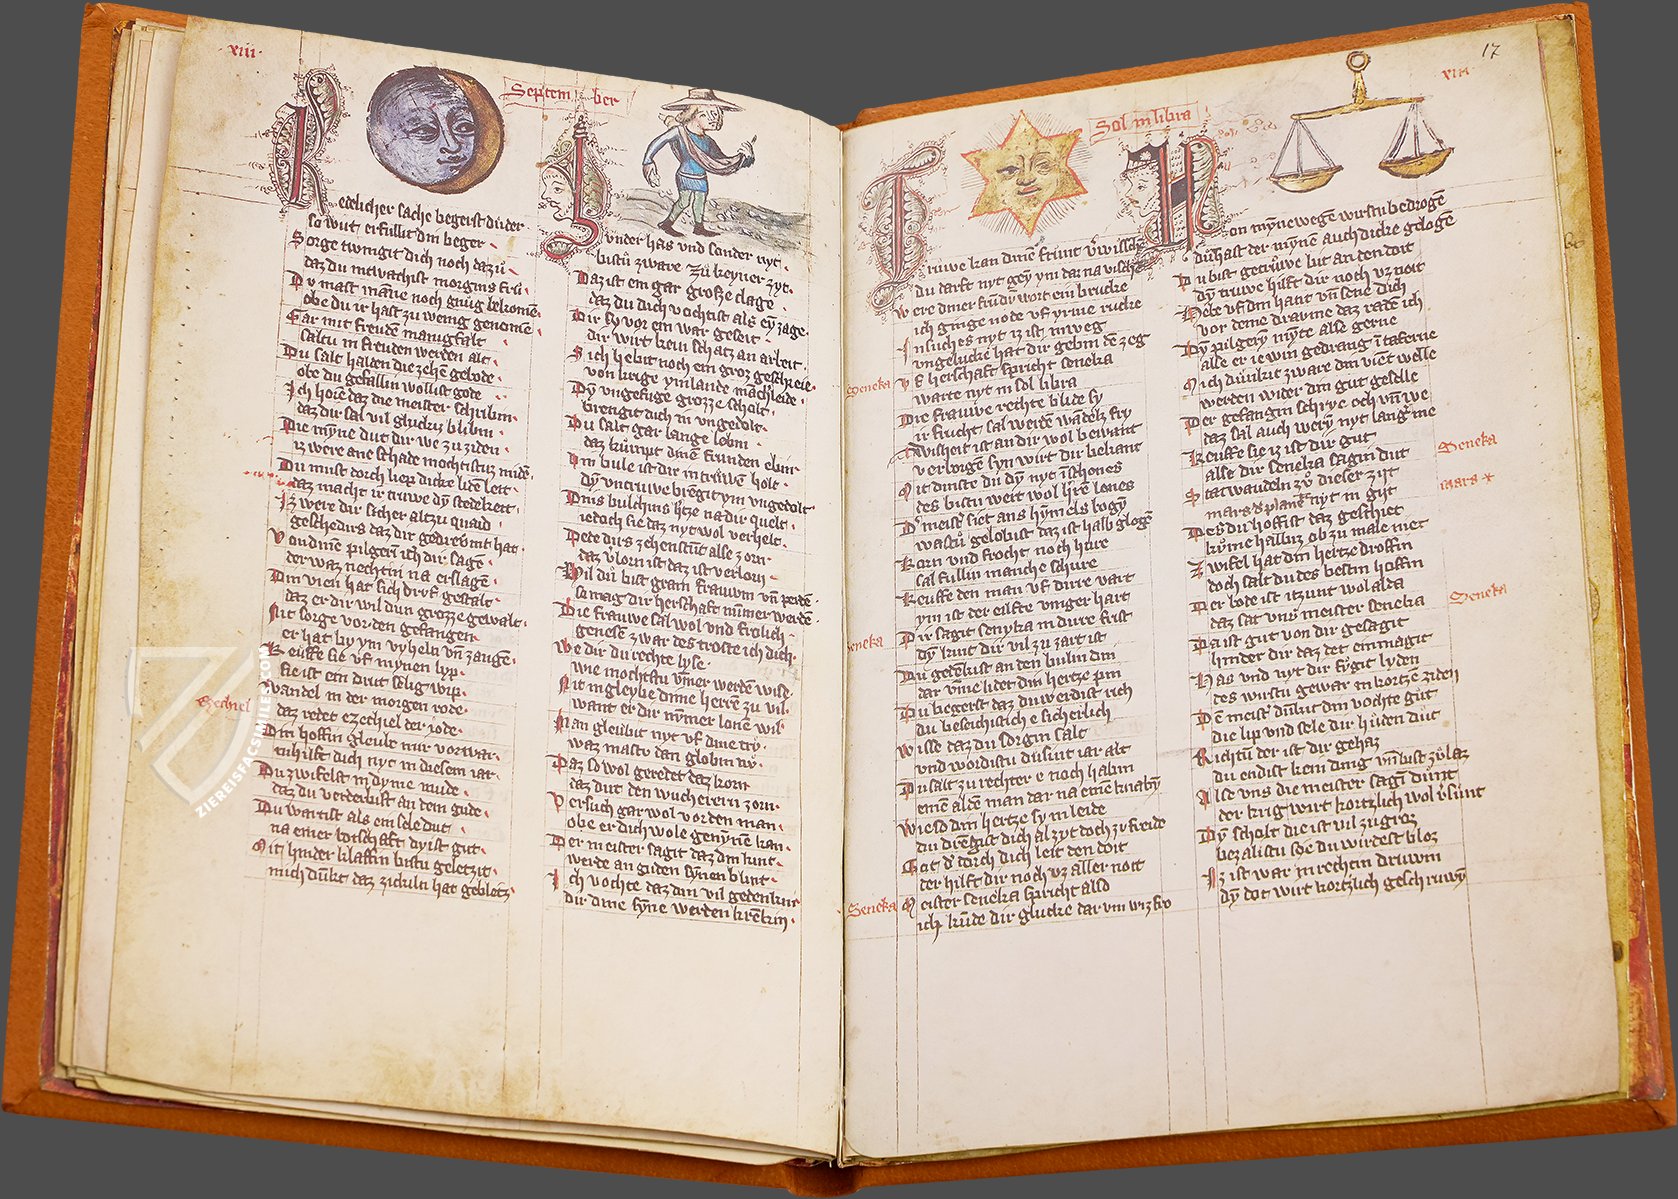 ·xiii·
Septem ber
Retelicher sache begerst du der
so wirt erfullit din beger
Sorge twingit dich noch dazu
daz du mewachist morgins fru
Du mast māne noch gnug bekomē
obe du ir hast zu wenig genomē
Gar mit freudē manigfalt
saltu in freuden werden alt
Du salt halden die zehē gebode
obe du gefallin wollist gode
Ich hore daz die meister schribin
daz du sal vil glucks blibin
Die mȳne dut dir we zu ziden
iz were ane schade mochtistuz midē
Du must dorch liep dicke lidē leit
daz macht ir truwe dy stedekeit
Iz were dir sicher altzu quaid
geschedirs daz dir gedreuwt hat
Von dinē pilgerī ich dir sage
der waz nechtin na erslagē
Din vient hat sich druf gestalt
daz er dir wil dun grozze gewalt
Mit sorge vor den gefangen
er hat by ym vyheln vn̄ zange
Keuffe sie vf mynen lyp
sie ist ein drut selig wip
Wandel in der morgen rode
Ezechiel
daz redet ezechiel der iode
Din hoffin gleubt mir vorwar
enhilft dich nyt in diesem iar
Du zwifelst in dyme mude
daz du verderbist an dem gude
Du wartist als ein sele dut
na einer botschaft dy ist gut
Mit hinder klaffin bistu geletzit
mich dūkt daz zickuln hat gebletz
Sunder has vnd sonder nyt
bistu zware zu keyner zyt
Daz ist ein gar große clage
daz du dich vochtist als eȳ zage
Dir sy vor ein war geseit
dir wirt kein schatz an arbeit
Sich hebit noch ein groz geschreie
von krige ym lande māchleide
Dy vngefuge grozze scholt
brengit dich in vngedolt
Du salt gar lange lebin
daz kūmpt dinē frunden ebin
Din bule ist dir in truwē holt
dy vntruwe brēgit ym vngedolt
Dins bulchins hitze na dir quelt
iedoch sie daz nyt wol verhelt
Dede dirs zehenstūt alse zorn
daz v̓lorn ist daz ist verlorn
Wil du bist gram frauwin vn̄ pferdē
so mag dir herschaft nūmer werdē
Die frauwe sal wol vnd frolich
genesē zwar des troste ich dich
We dir du rechte lyse
wie mochstu vm̄er werdē wise
Nit in gleybe dime herrē zu vil
want er dir nȳmer lonē wil
Man gleubit nyt vf dine try
waz mastv dan globin ny
Daz so wol geredet daz korn
daz dut den wucherern zorn
Versuch gar wol vor den man
obe er dich wole genynē kan
Der meister sagit daz din kint
werde an guden synen blint
Ich vochte daz din vil gedenkine
dir dine syne werden krēkin
17
xiii
Sol in libra
Truwe kan dinē frunt v̓wisschē
du darft nyt gey ym daz na vische
Were diner frūde wort ein brucke
ich ginge node vf yrme rucke
Insuches nyt iz ist inweg
vngelucke hat dir gebin dē zeg
Seneka
Vs herschaft spricht seneka
warte nyt in sol libra
Die frauwe rechte blide sy
ir frucht sal werdē wādelz fry
Wisheit ist an dir wol bewant
verborgē syn wirt dir bekant
Mit dinste du dy nyt īschones
des bistu wert wol hēre lones
Der meister siet ans hymels bogē
wastu gelobist daz ist halb glogē
Korn vnd frocht noch hure
sal fullin manche schure
Keuffe den man vf dirre vart
ym ist der eilfte vinger hart
Seneka
Dir sagit senyka in dirre frist
dy kint dir vil zu zart ist
Du gedēkist an den bulin din
dar vme lidet din hertze pin
Du begerst daz du werdist rich
du beschichtich e sicherlich
Wisse daz du sorgin salt
vnd wordistu dusint iar alt
Du salt zu rechter e noch habin
einē aldē man dar na einē knabȳ
Wie so din hertze sy in leide
du drēgist dich al zyt doch zu freide
Got d̓ dorch dich leit den doit
der hilft dir noch vz aller noit
Seneka
Meister seneka spricht also
ich kūde dir glucke dar vm wiz fro
Von mȳnewegē wirstu bedrogē
du hast der mȳne auch dicke gelogē
Du bist getruwe bit an den doit
dy truwe hilft dir noch vz noit
Hebe vf din hant vn̄ sene dich
vor deme drauwe daz radē ich
Dy pilgerȳ mȳte alse gerne
alle er ie win gedrang ī taferne
Mich dunkit zware din vient welle
werden wider din gut geselle
Der gefangin schrye och vn̄ we
daz sal auch werȳ nyt langer me
Keuffe sie iz ist dir gut
Seneka
alse dir seneka sagin dut
Stat wandeln zu dieser zyt
mars x
mars d̓ planet nyt in git
Des du hoffist daz geschiet
kȳme halbiz ob zu male niet
Zwifel hat din hertze droffin
doch salt du des bestin hoffin
Der bode ist itzunt wol alda
Seneka
daz sat vns̓ meister seneka
Da ist gut von dir gesagit
hinder dir daz det ein magit
Has vnd nyt dir fugit lyden
des wirstu gewar in kortzē ziden
Dē meist̓ dūkit din vochte gut
die lip vnd sele dir huden dut
Richtū der ist dir gehaz
du endist kein ding vn̄ bist zu laz
Alse vns die meister sagē dūnt
der krig wirt kortzlich wol v̓sūnt
Dy scholt die ist vil zu groz
bezalistu sye du wirdest bloz
Iz ist war in rechtin druwin
dy dot wirt kortzlich geschruwȳ
ZIEREISFACSIMILES.COM